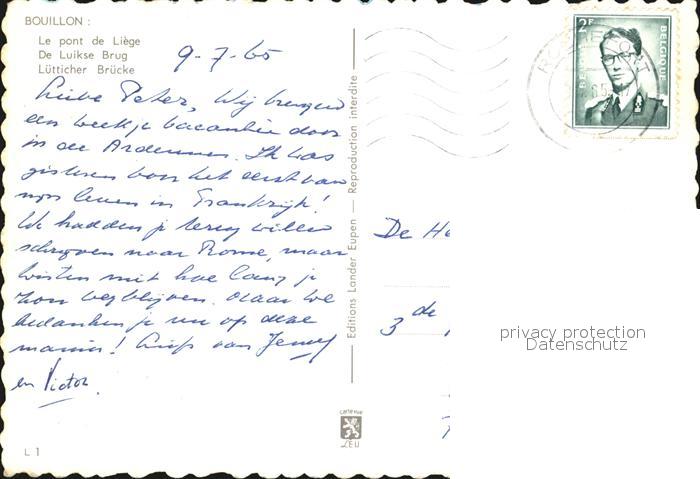 BOUILLON :
Le pont de Liège
De Luikse Brug
Lütticher Brücke
9-7-65
Lieve Peter, Wij brengen
een weekje vacantie door
in de Ardennen. Ik was
gisteren voor het eerst van
mijn leven in Frankrijk!
We hadden je terug willen
schrijven naar Rome, maar
wisten niet hoe lang je
zou wegblijven. Maar we
bedanken je nu op deze
manier! Liefs van Jenny
en Victor.
L 1
Editions Lander Eupen — Reproduction interdite
carte vue
LEU
2F
BELGIQUE
De He
3de
privacy protection
Datenschutz